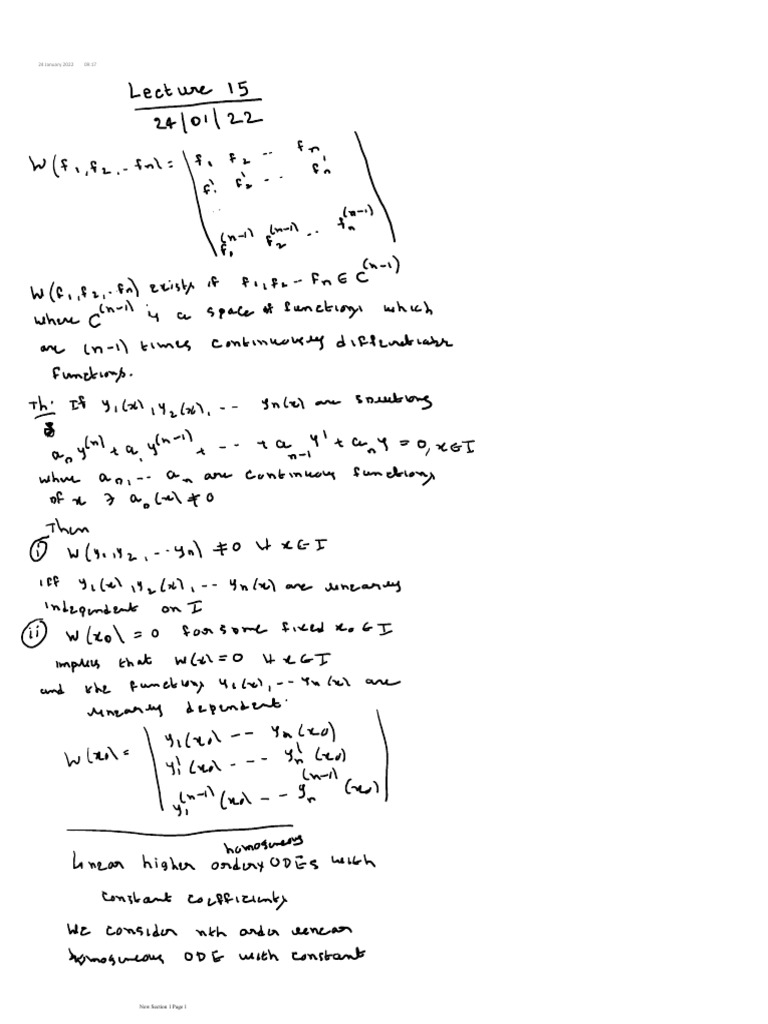 24 January 2022 09:17
Lecture 15
24/01/22
W(f₁,f₂,..fn) = | f₁ f₂ .. fn
f₁' f₂' .. fn'
..
f₁^(n-1) f₂^(n-1) .. fn^(n-1) |
W(f₁,f₂,..fn) exists if f₁,f₂ -- fn ∈ C^(n-1)
where C^(n-1) is a space of functions which
are (n-1) times continuously differentiable
functions.
Th: If y₁(x), y₂(x), -- yn(x) are solutions
a₀y^(n) + a₁y^(n-1) + -- + a_(n-1) y' + a_n y = 0, x ∈ I
where a₀, -- an are continuous functions
of x ∋ a₀(x) ≠ 0
Then
(i) W(y₁,y₂, -- yn) ≠ 0 ∀ x ∈ I
iff y₁(x), y₂(x), -- yn(x) are linearly
independent on I
(ii) W(x₀) = 0 for some fixed x₀ ∈ I
implies that W(x) = 0 ∀ x ∈ I
and the functions y₁(x), -- yn(x) are
linearly dependent.
W(x₀) = | y₁(x₀) -- yn(x₀)
y₁'(x₀) --- yn'(x₀)
y₁^(n-1)(x₀) -- yn^(n-1)(x₀) |
homogneous
Linear higher order ODEs with
constant coefficients
We consider nth order linear
homogneous ODE with constant
New Section 1 Page 1